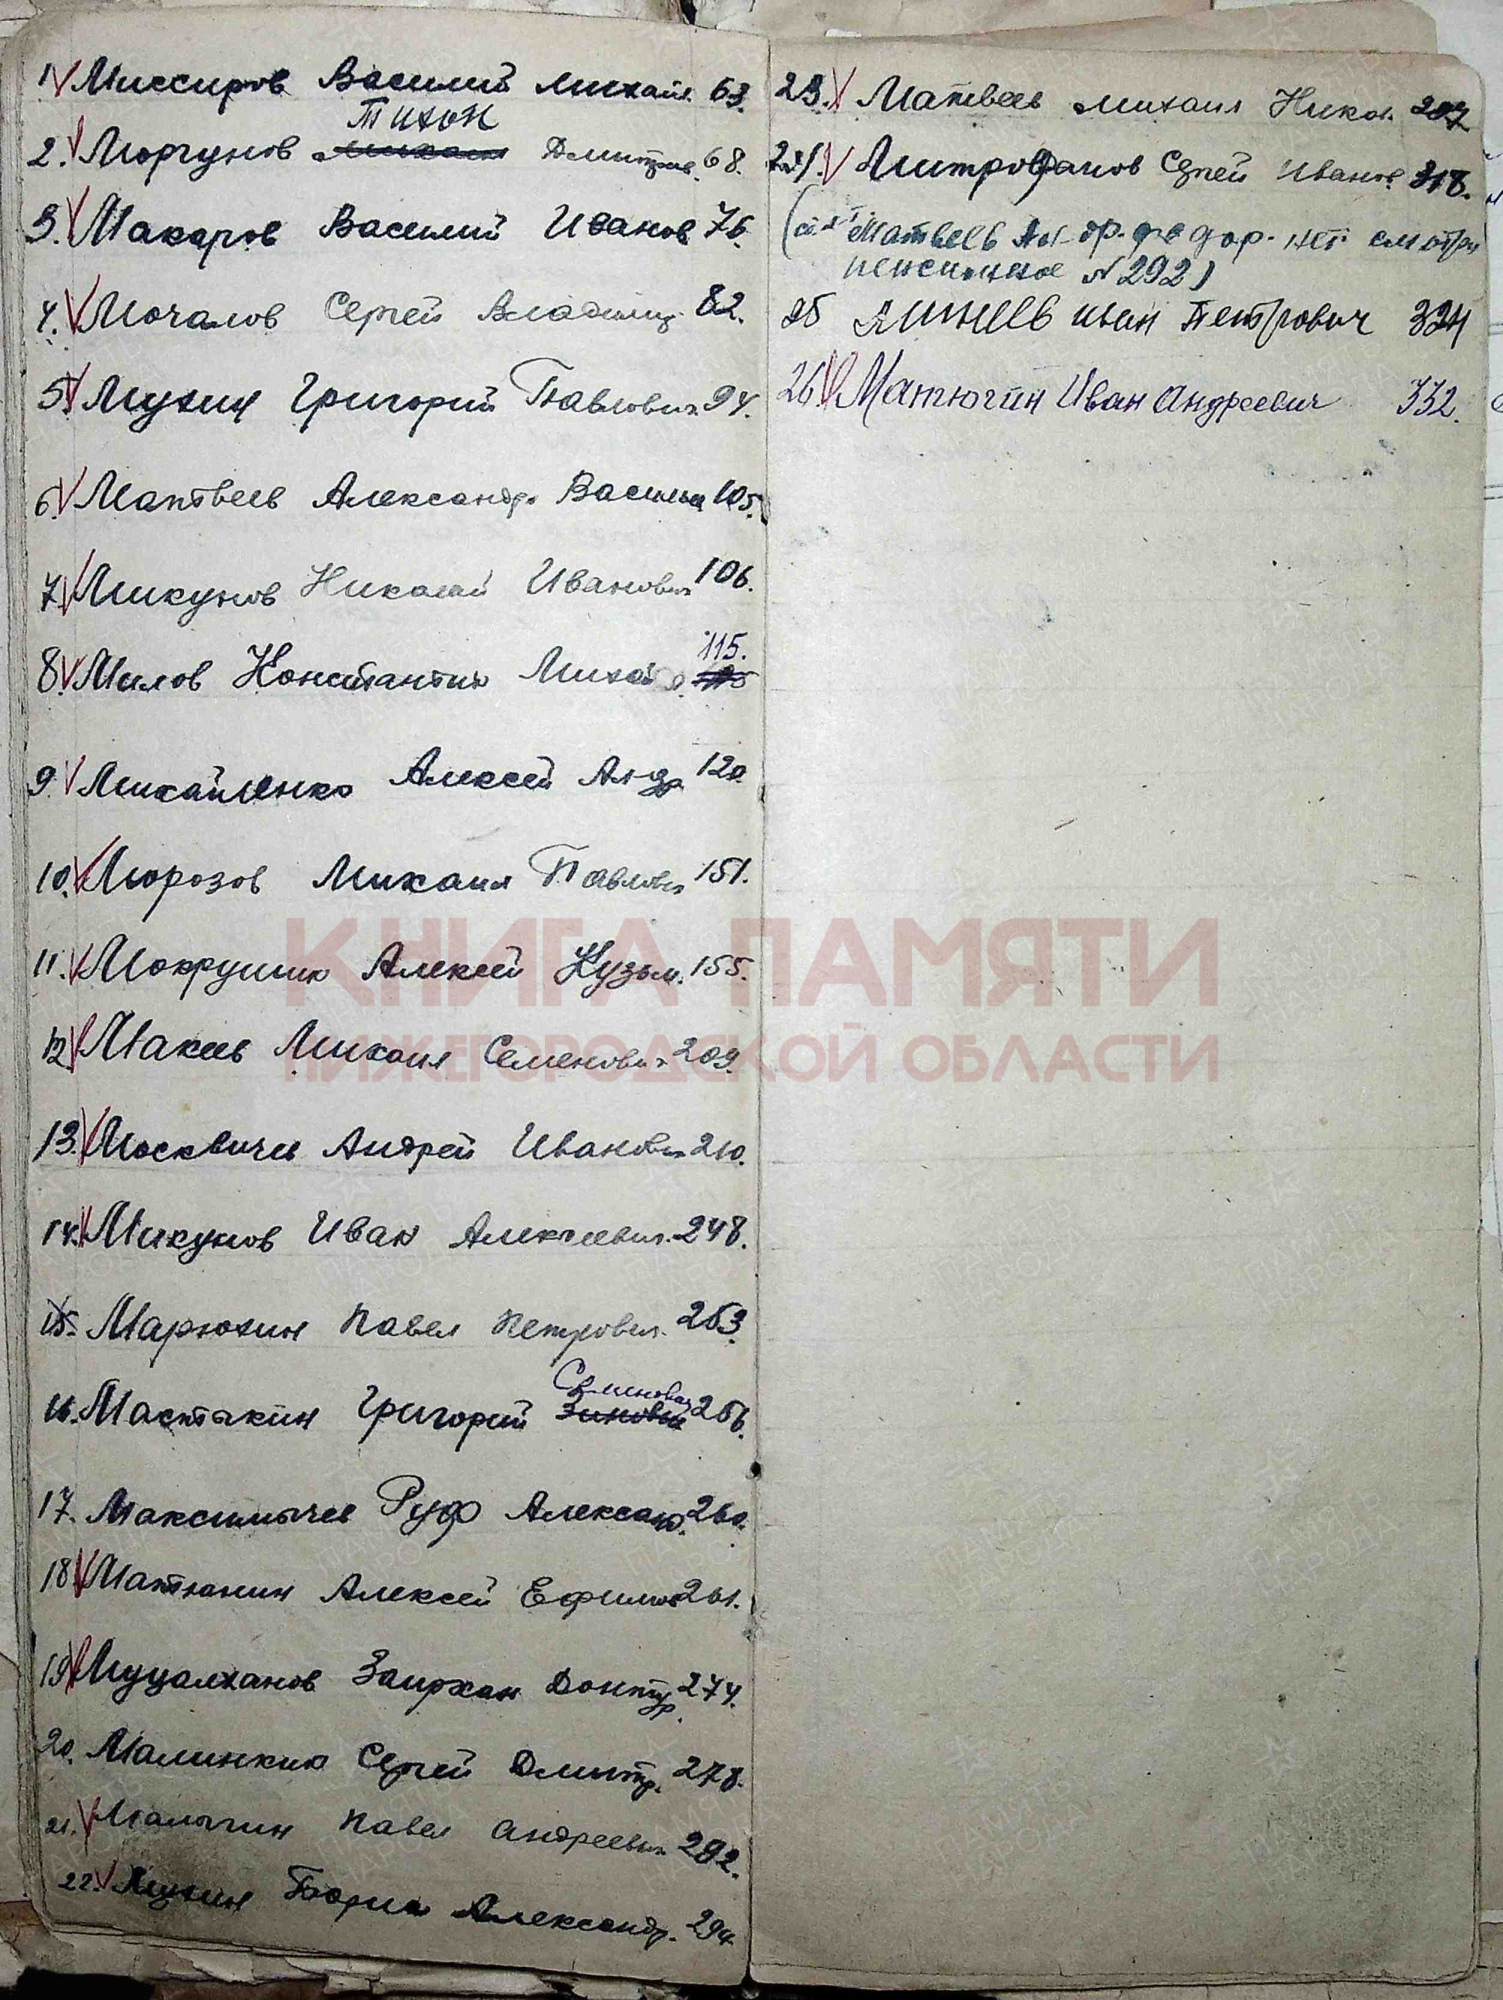 1. Миссиров Василий Михайл. 63.
Тихон
2. Моргунов Михаил Дмитриев. 68.
3. Макаров Василий Иванов. 76.
4. Мочалов Сергей Владимир. 82.
5. Мухин Григорий Павлович 94.
6. Матвеев Александр. Васильев 105.
7. Микунов Николай Иванович 106.
115.
8. Милов Константин Михай
9. Михайленко Алексей 120
10. Морозов Михаил Павлович 151.
11. Мокрушин Алексей Кузьм. 155.
12 Макеев Михаил Семенович 209.
13. Москвичев Андрей Иванович 210.
14. Микунов Иван Алексеевич. 248.
15. Марюхин Павел Петрович. 253.
Семенович
16. Мастакин Григорий Зиновьев 256.
17. Максимычев Руф Александ. 260.
18 Матюнин Алексей Ефимов 261.
19 Муцалханов Заирхан 274.
20. Малинкин Сергей Дмитр. 278.
21. Малыгин Павел Андреевич 292.
22. Мухин Александр. 294.
23. Матвеев Михаил Никол. 297
24. Митрофанов Сергей Иванов. 318.
Матвеев Федор. нет смотри
пенсионное № 292)
25 Минеев Иван Петрович 324
26 Матюгин Иван Андреевич 332.
КНИГА ПАМЯТИ
НИЖЕГОРОДСКОЙ ОБЛАСТИ